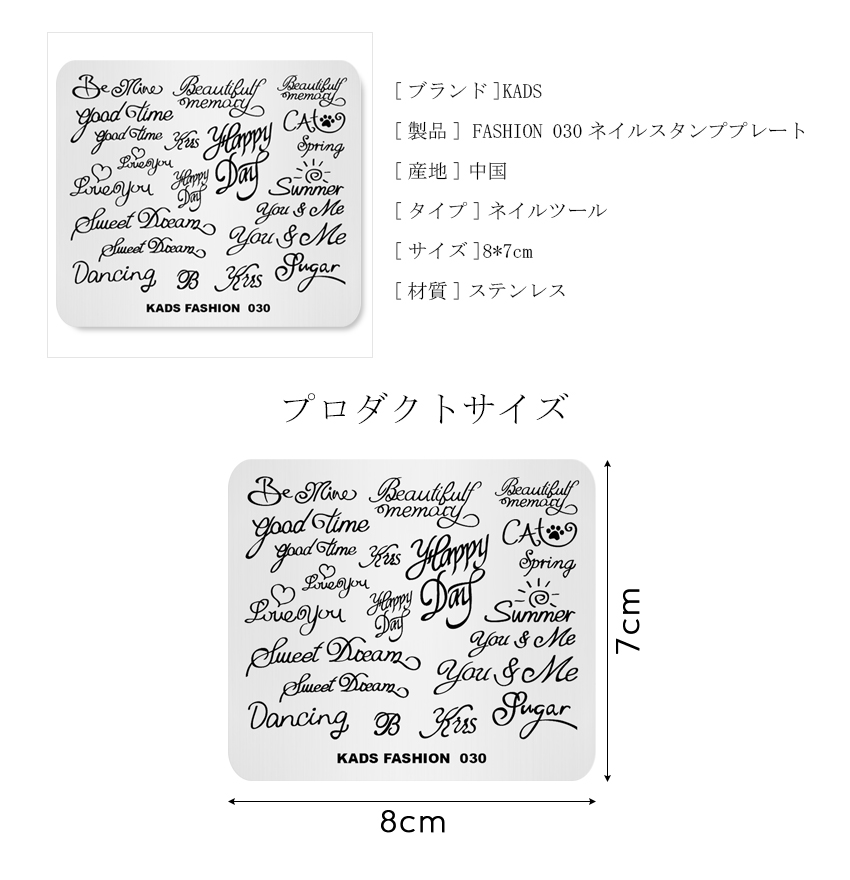 Be Mine
Beautifulf
memory
Beautifulf
memory
good time
good time
Kus
Happy
Day
CAt
Spring
Love You
Love You
Happy
Day
Summer
You & Me
Sweet Dream
You & Me
Sweet Dream
Dancing
B
Kus
Sugar
KADS FASHION 030
[ ブランド ]KADS
[ 製品 ] FASHION 030 ネイルスタンププレート
[ 産地 ] 中国
[ タイプ ] ネイルツール
[ サイズ ]8*7cm
[ 材質 ] ステンレス
プロダクトサイズ
Be Mine
Beautifulf
memory
Beautifulf
memory
good time
good time
Kus
Happy
Day
CAt
Spring
Love You
Love You
Happy
Day
Summer
You & Me
Sweet Dream
You & Me
Sweet Dream
Dancing
B
Kus
Sugar
KADS FASHION 030
7cm
8cm